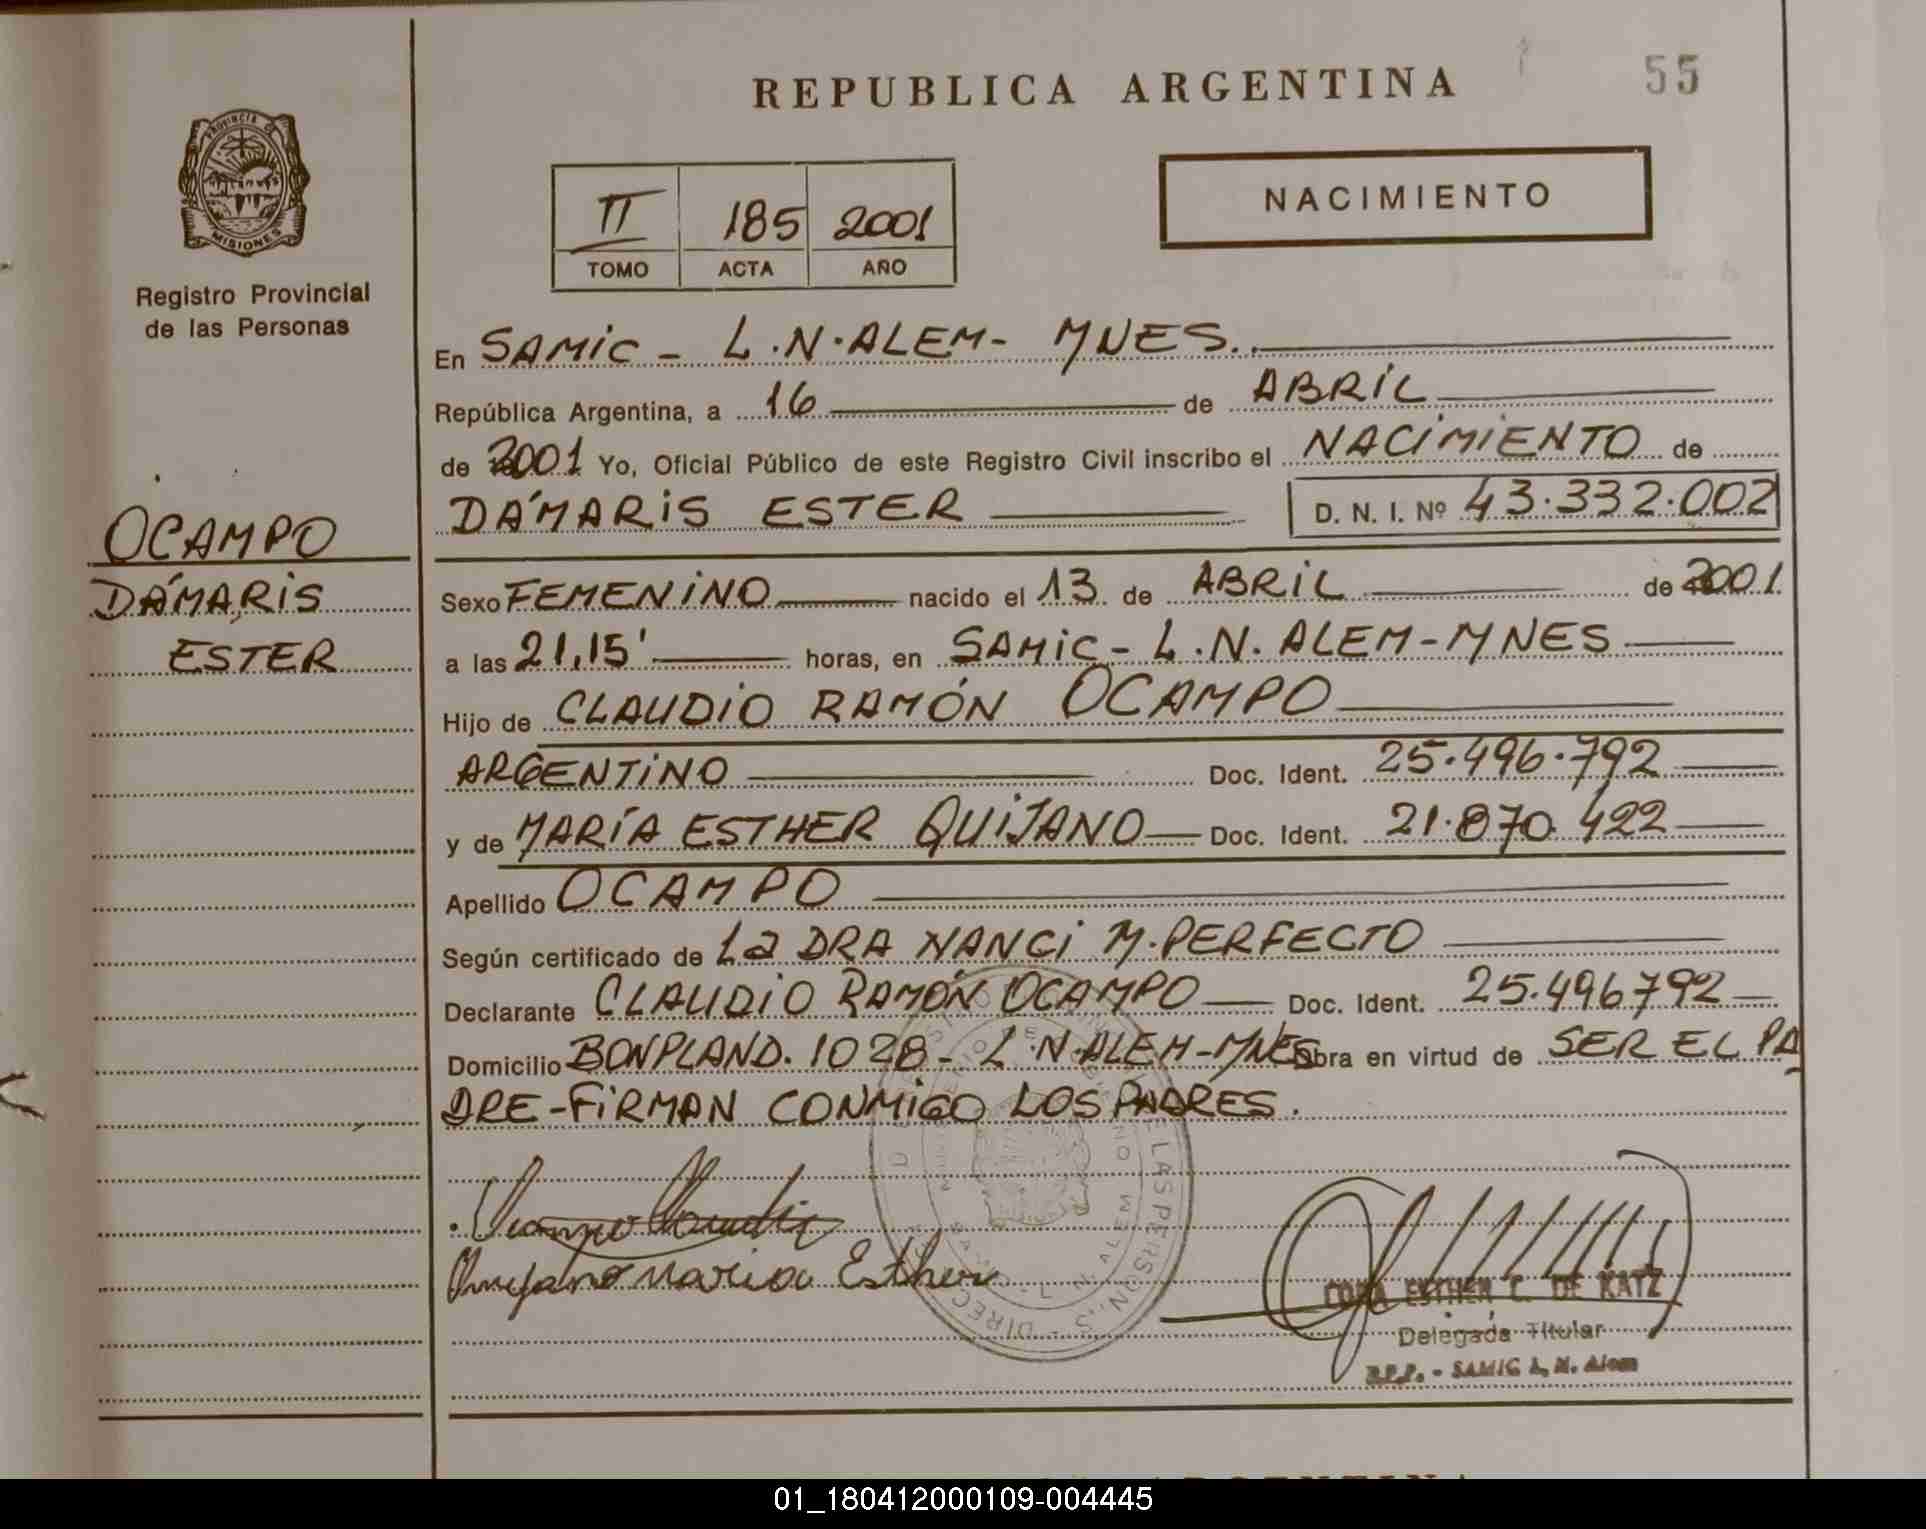 REPUBLICA ARGENTINA
55
PROVINCIA DE
MISIONES
Registro Provincial
de las Personas
II 185 2001
TOMO ACTA AÑO
NACIMIENTO
En SAMIC - L.N.ALEM- MNES.
República Argentina, a 16 de ABRIL
de 2001 Yo, Oficial Público de este Registro Civil inscribo el NACIMIENTO de
DÁMARIS ESTER D. N. I. Nº 43.332.002
OCAMPO
DÁMARIS
ESTER
Sexo FEMENINO nacido el 13 de ABRIL de 2001.
a las 21,15' horas, en SAMIC - L.N. ALEM-MNES
Hijo de CLAUDIO RAMÓN OCAMPO
ARGENTINO Doc. Ident. 25.496.792
y de MARÍA ESTHER QUIJANO Doc. Ident. 21.870.422
Apellido OCAMPO
Según certificado de La DRA NANCI M.PERFECTO
Declarante CLAUDIO RAMÓN OCAMPO Doc. Ident. 25.496792
Domicilio BONPLAND. 1028- L.N.ALEM-MNES Obra en virtud de SER EL PA
DRE-FIRMAN CONMIGO LOS PADRES.
Quijano Maria Esther
ESTHER C. DE KATZ
Delegada Titular
SAMIC L. N. Alem
01_180412000109-004445